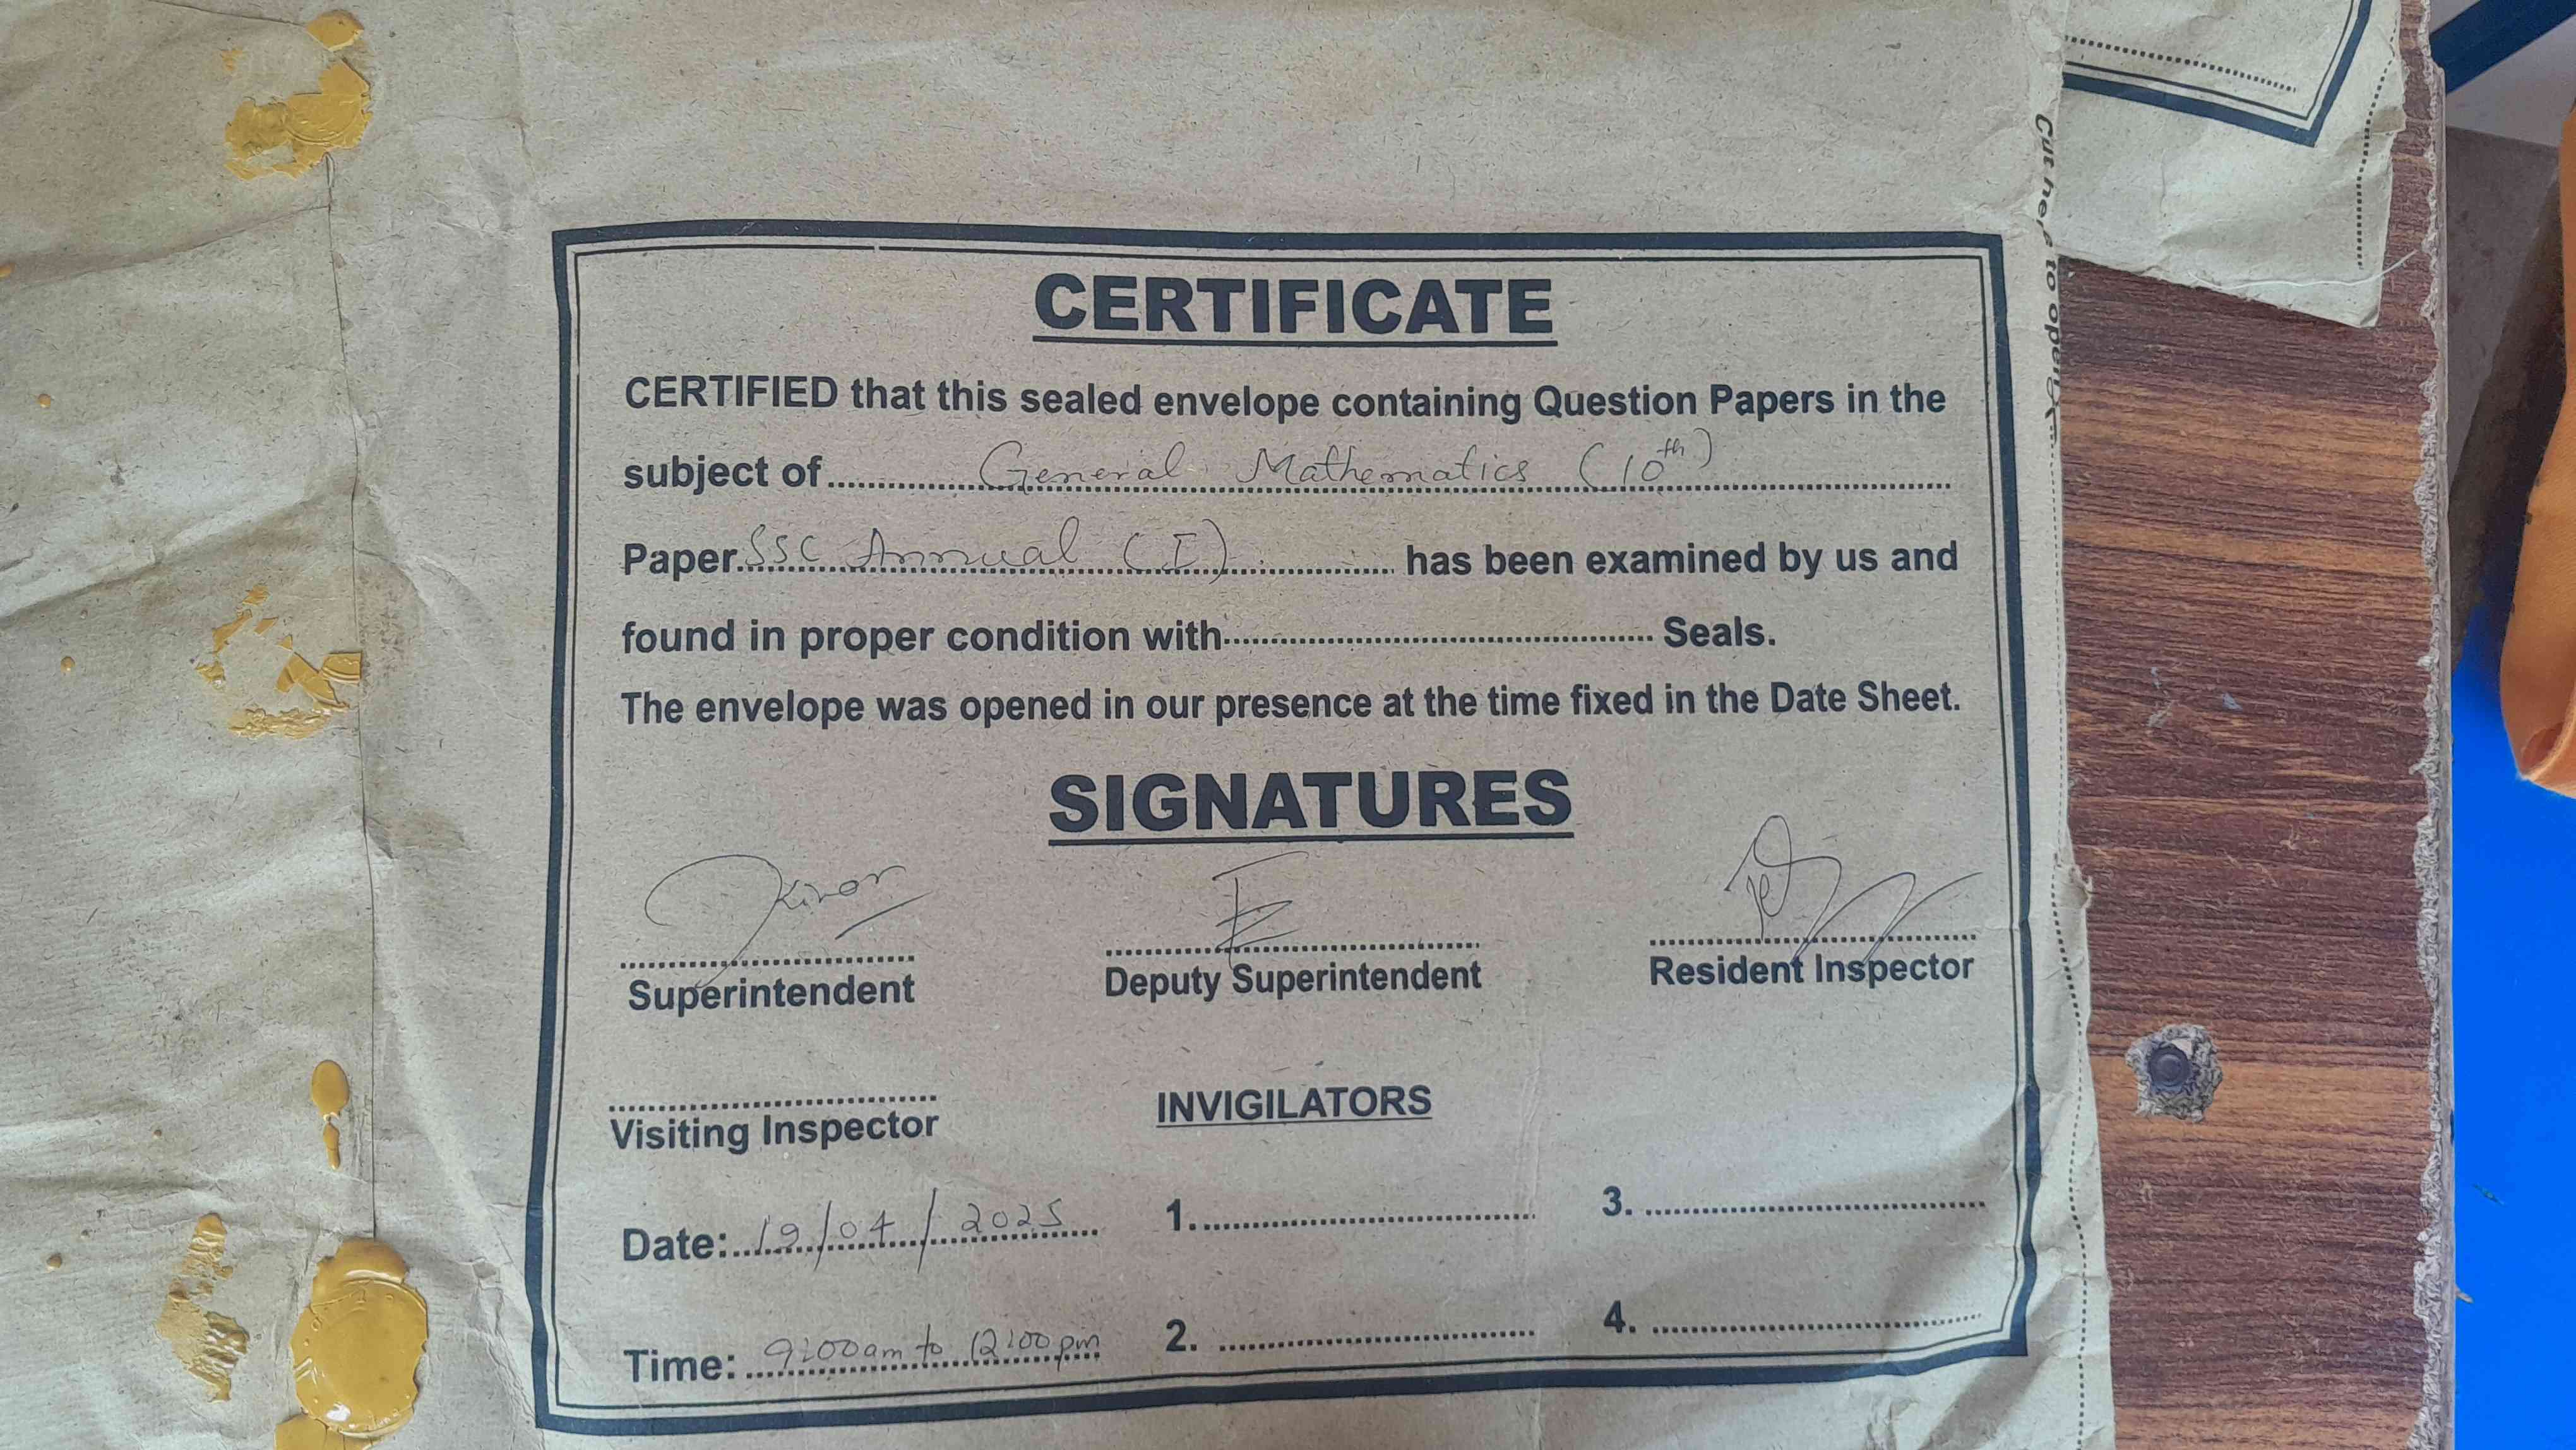 CERTIFICATE
CERTIFIED that this sealed envelope containing Question Papers in the
subject of General Mathematics (10th)
Paper SSC Annual (I) has been examined by us and
found in proper condition with Seals.
The envelope was opened in our presence at the time fixed in the Date Sheet.
SIGNATURES
Superintendent Deputy Superintendent Resident Inspector
Visiting Inspector INVIGILATORS
Date: 19/04/2025 1. 3.
Time: 9:00am to 12:00pm 2. 4.
Cut here to open